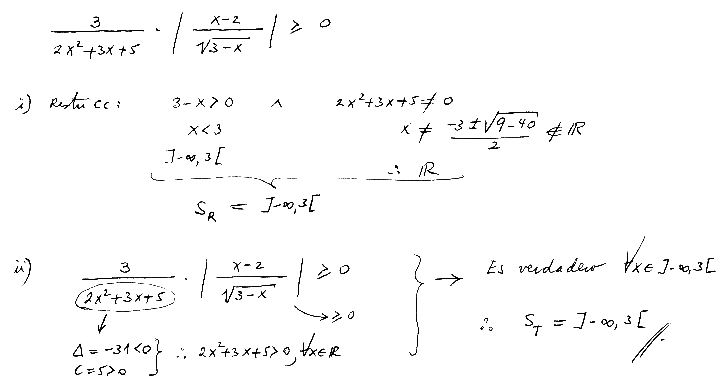 3/(2x²+3x+5) · | (x-2)/√(3-x) | ≥ 0
i) Restricc: 3-x>0 ∧ 2x²+3x+5≠0
x<3 x ≠ (-3±√(9-40))/2 ∉ ℝ
]-∞,3[ ∴ ℝ
S_R = ]-∞,3[
ii) 3/(2x²+3x+5) · | (x-2)/√(3-x) | ≥ 0 } → Es verdadero ∀x∈]-∞,3[
→ ≥0
∴ S_T = ]-∞,3[ //.
Δ=-31<0
C=5>0 } ∴ 2x²+3x+5>0, ∀x∈ℝ